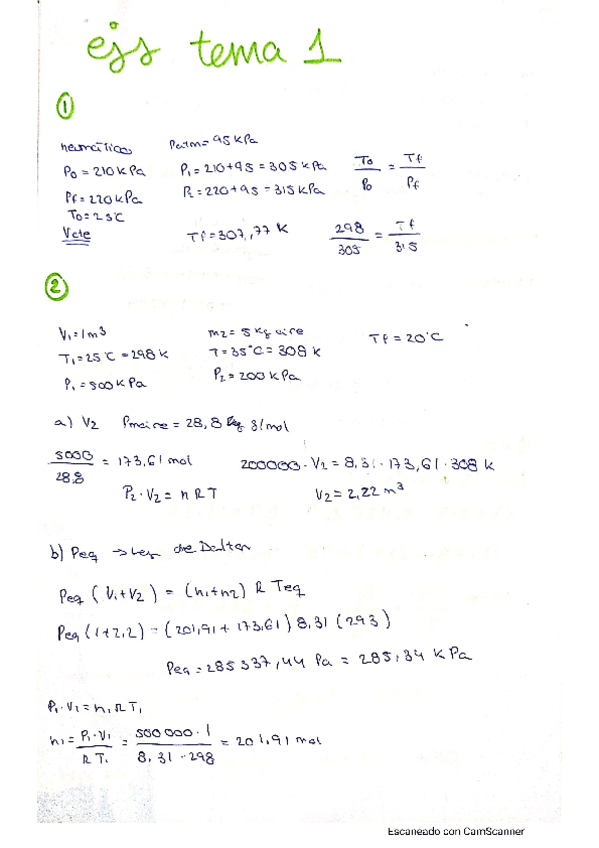 ejs tema 1
①
neumáticos Patm = 95 kPa
P0 = 210 kPa P1 = 210+95 = 305 kPa T0/P0 = Tf/Pf
Pf = 220 kPa P2 = 220+95 = 315 kPa
T0 = 25°C
Vcte Tf = 307,77 K 298/305 = Tf/315
②
V1 = 1 m³ m2 = 5 kg aire Tf = 20°C
T1 = 25°C = 298 K T = 35°C = 308 K
P1 = 500 kPa P2 = 200 kPa
a) V2 Pmaire = 28,8 g/mol
5000/28,8 = 173,61 mol 200000 · V2 = 8,31 · 173,61 · 308 K
P2 · V2 = n R T V2 = 2,22 m³
b) Peq → ley de Dalton
Peq (V1+V2) = (n1+n2) R Teq
Peq (1+2,2) = (201,91 + 173,61) 8,31 (293)
Peq = 285337,44 Pa = 285,34 kPa
P1 · V1 = n1 R T1
n1 = P1 · V1 / R T1 = 500 000 · 1 / 8,31 · 298 = 201,91 mol
Escaneado con CamScanner